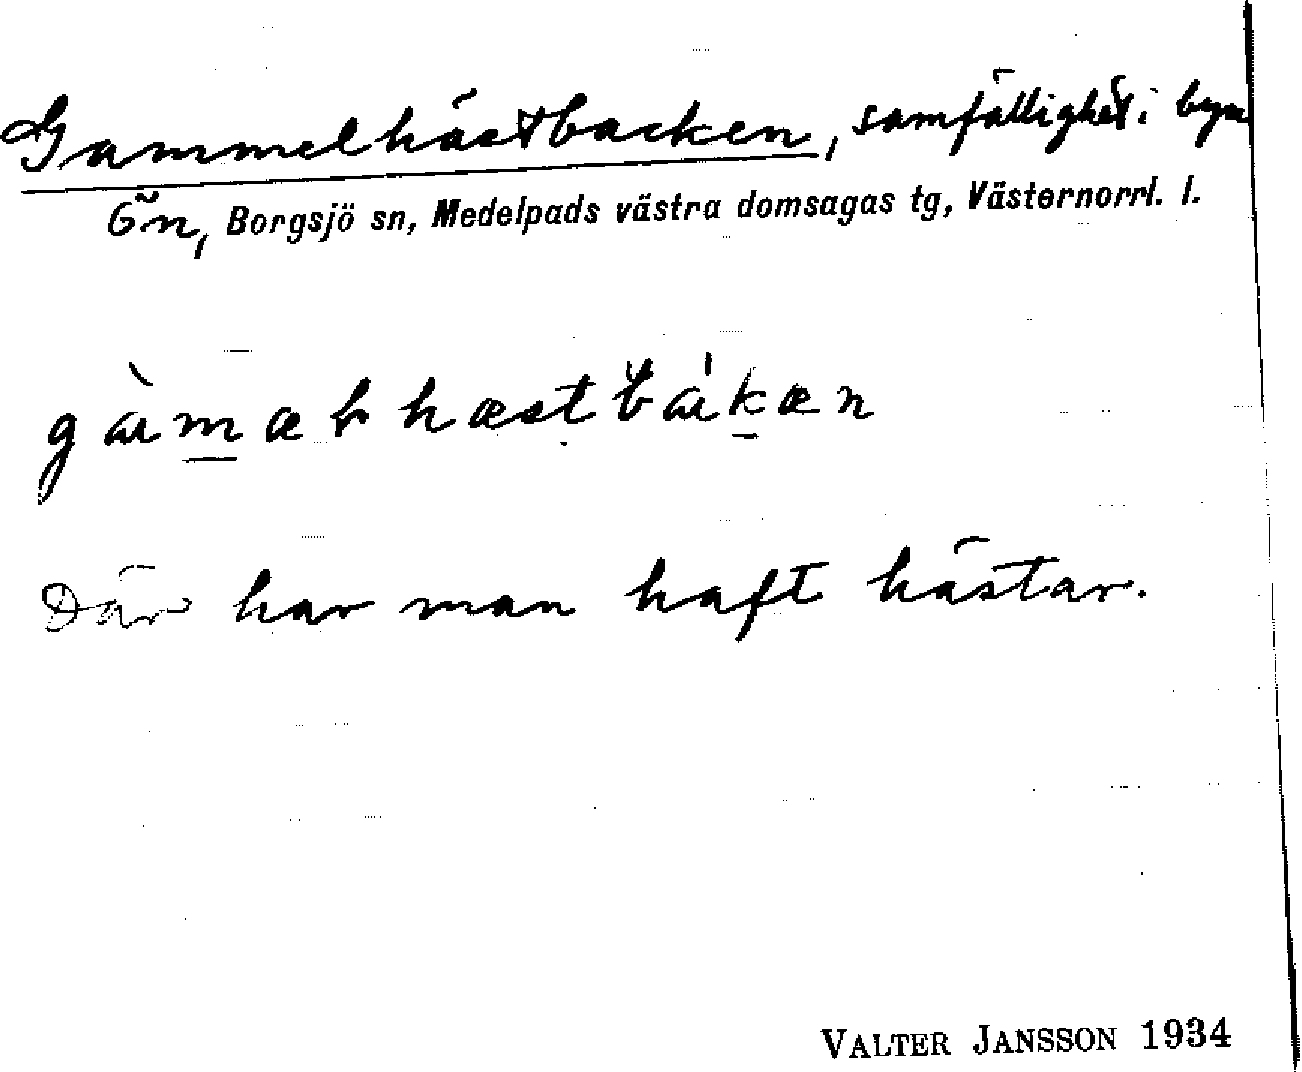 Gammelhästbacken, samfällighet i byn
Ön, Borgsjö sn, Medelpads västra domsagas tg, Västernorrl. l.
Där har man haft hästar.
VALTER JANSSON 1934